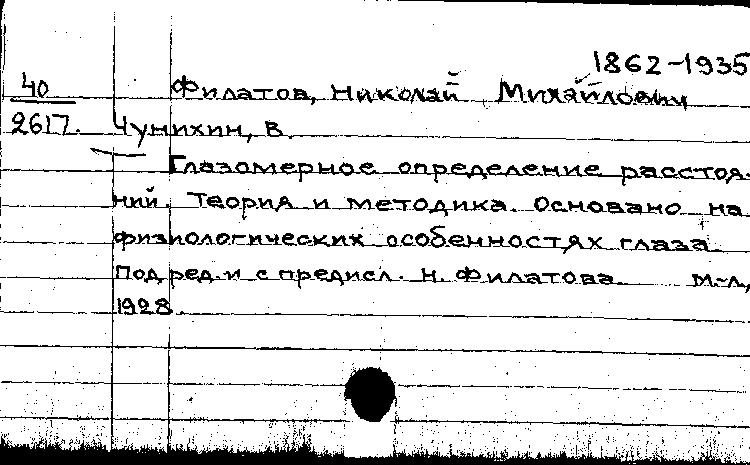 1862-1935
40
Филатов, Николай Михайлович
2617. Чунихин, В.
Глазомерное определение расстоя-
ний. Теория и методика. Основано на
физиологических особенностях глаза.
Под ред. и с предисл. Н. Филатова. М.-Л.,
1928.